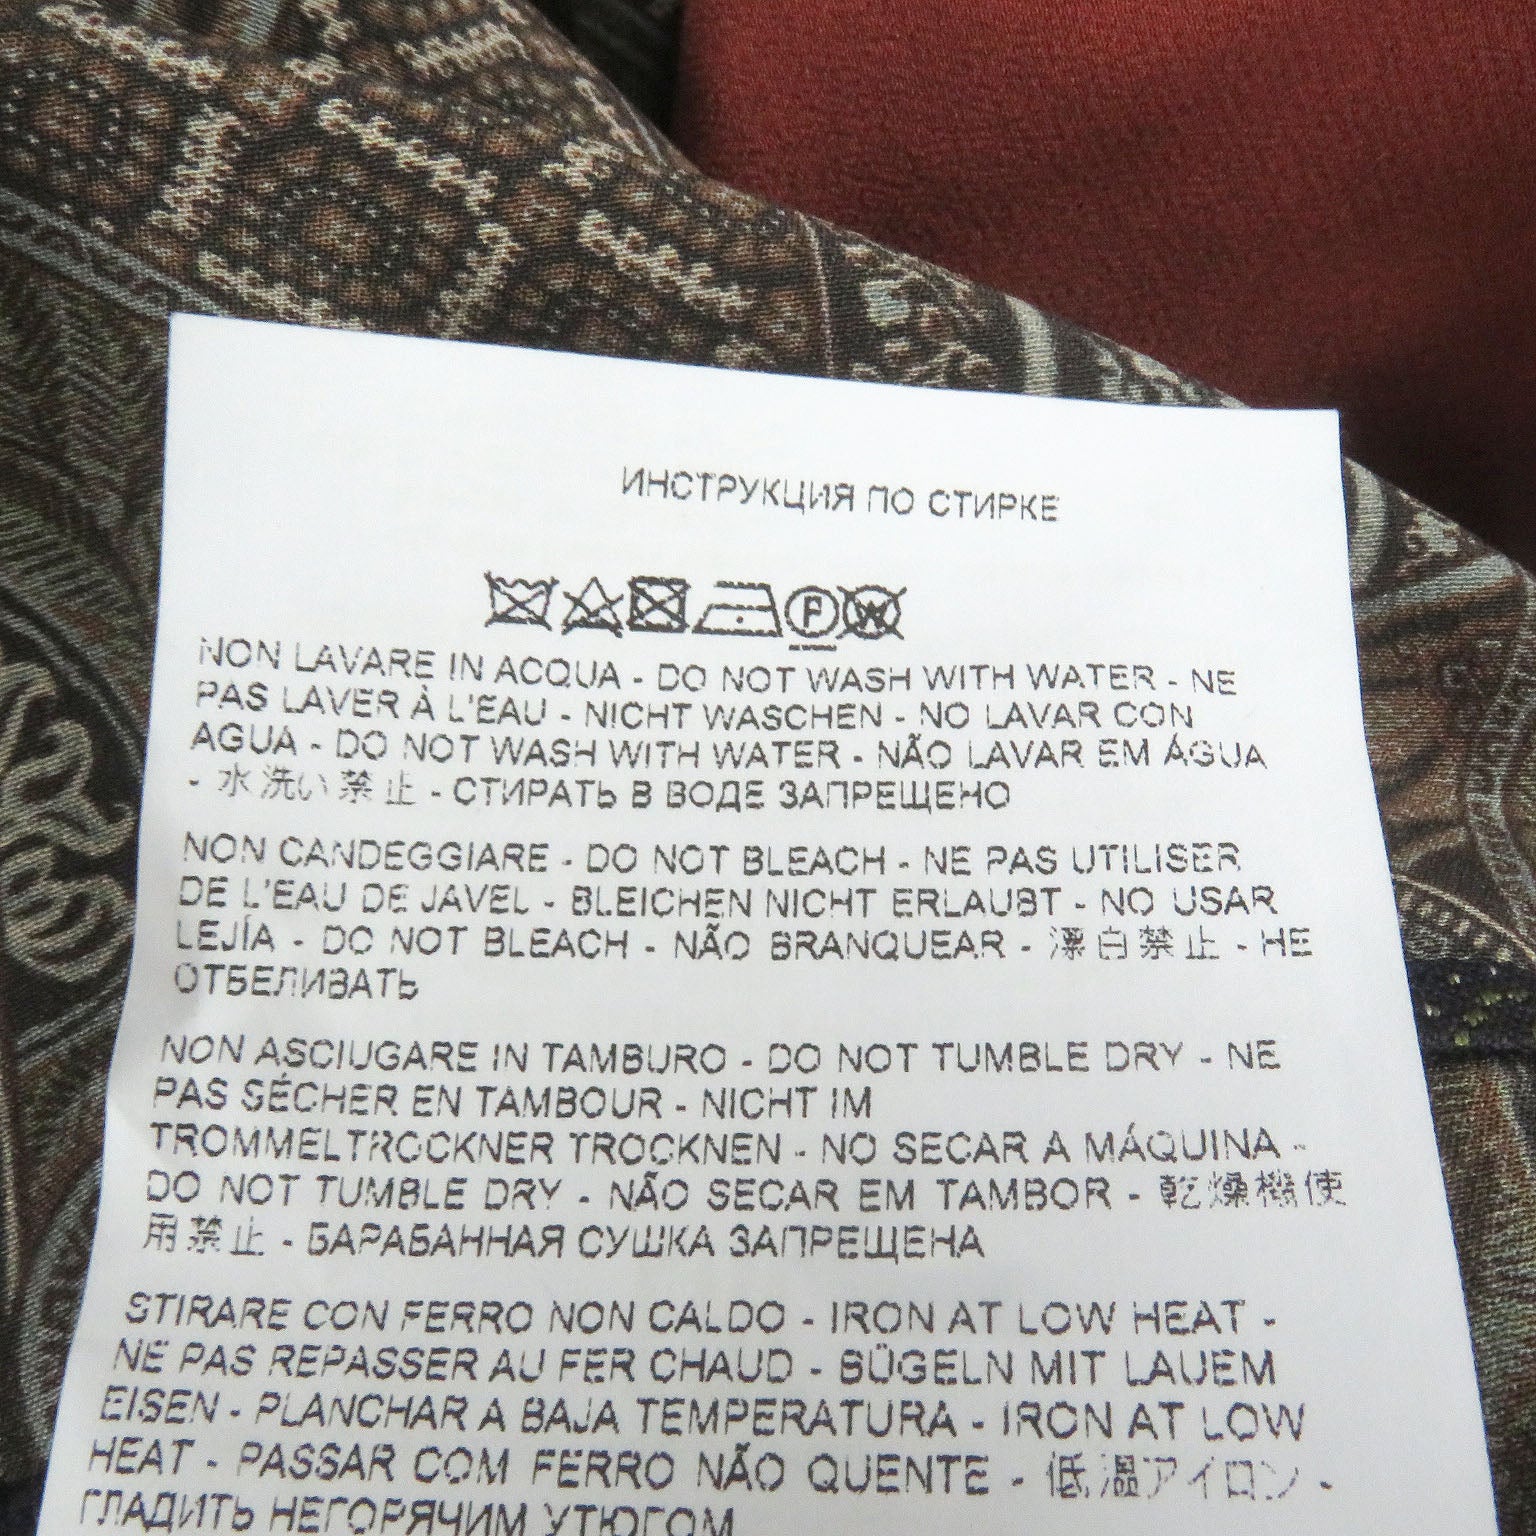 ИНСТРУКЦИЯ ПО СТИРКЕ
P W
NON LAVARE IN ACQUA - DO NOT WASH WITH WATER - NE
PAS LAVER À L'EAU - NICHT WASCHEN - NO LAVAR CON
AGUA - DO NOT WASH WITH WATER - NÃO LAVAR EM ÁGUA
- 水洗い禁止 - СТИРАТЬ В ВОДЕ ЗАПРЕЩЕНО
NON CANDEGGIARE - DO NOT BLEACH - NE PAS UTILISER
DE L'EAU DE JAVEL - BLEICHEN NICHT ERLAUBT - NO USAR
LEJÍA - DO NOT BLEACH - NÃO BRANQUEAR - 漂白禁止 - НЕ
ОТБЕЛИВАТЬ
NON ASCIUGARE IN TAMBURO - DO NOT TUMBLE DRY - NE
PAS SÉCHER EN TAMBOUR - NICHT IM
TROMMELTROCKNER TROCKNEN - NO SECAR A MÁQUINA -
DO NOT TUMBLE DRY - NÃO SECAR EM TAMBOR - 乾燥機使
用禁止 - БАРАБАННАЯ СУШКА ЗАПРЕЩЕНА
STIRARE CON FERRO NON CALDO - IRON AT LOW HEAT -
NE PAS REPASSER AU FER CHAUD - BÜGELN MIT LAUEM
EISEN - PLANCHAR A BAJA TEMPERATURA - IRON AT LOW
HEAT - PASSAR COM FERRO NÃO QUENTE - 低温アイロン -
ГЛАДИТЬ НЕГОРЯЧИМ УТЮГОМ